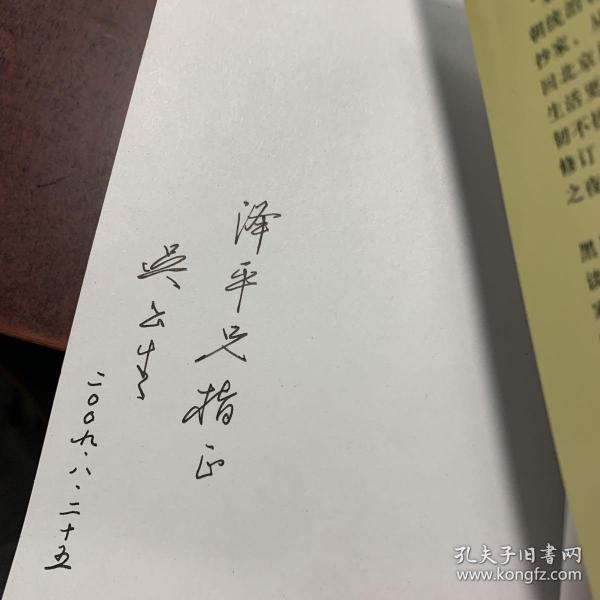 泽平兄指正
吴
二〇〇九.八.二十五
朝统治
抄家,从
回北京
生活更
初不
修订
之夜
黑
读
孔夫子旧书网
www.kongfz.com